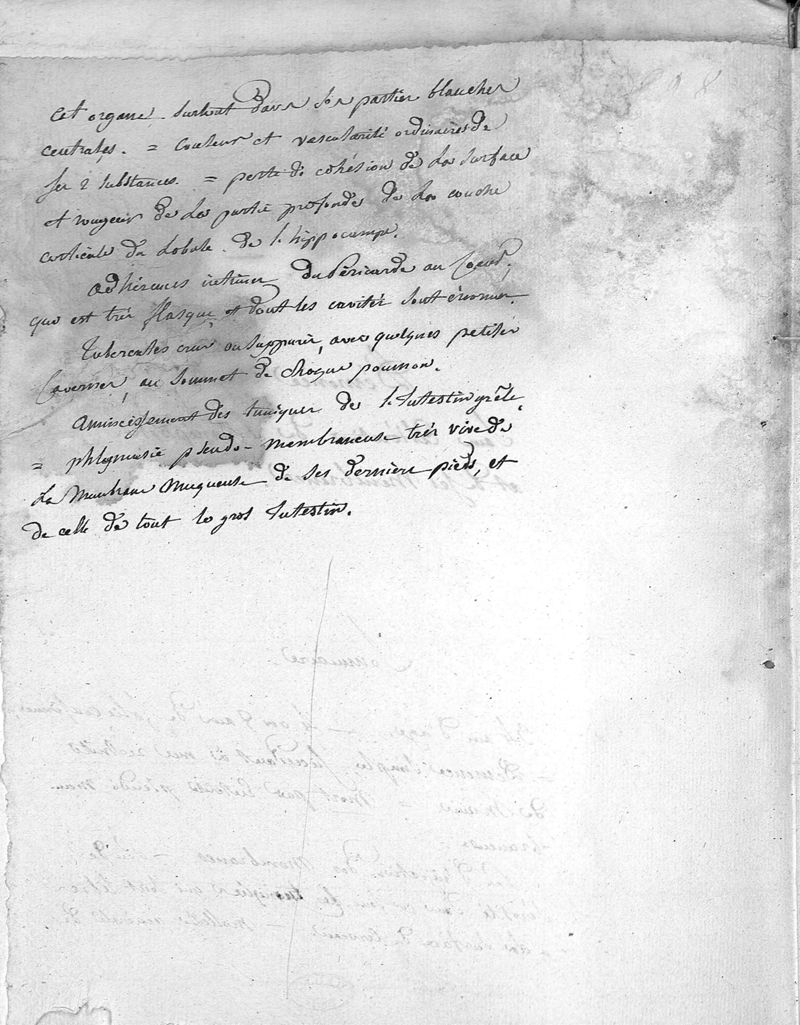 cet organe. Surtout dans ses parties blanches
centrales. = Couleur et vascularité ordinaires de
ses 2 substances. = perte de cohésion de la surface
et rougeur de la partie profonde de la couche
corticale du Lobule de l'hippocampe.
adhérences intimes du Péricarde au Coeur,
qui est très flasque et dont les cavités sont énormes.
Tubercules crus ou suppurés, avec quelques petites
Cavernes, au Sommet de chaque poumon.
Amincissement des tuniques de l'Intestin grêle
= phlegmasie pseudo-membraneuse très vive de
la Membrane Muqueuse de ses derniers pieds, et
de celle de tout le gros Intestin.